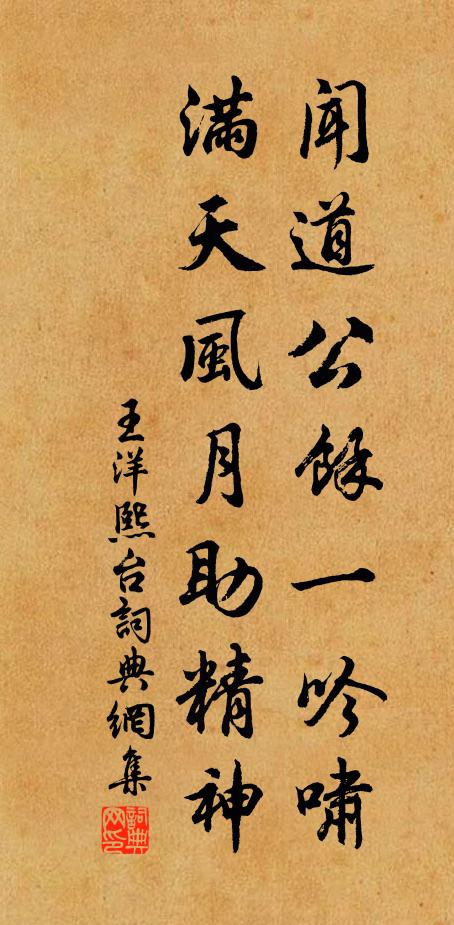 聞道公餘一吟嘯
滿天風月助精神
王洋熙台詞典網集
詞典网印